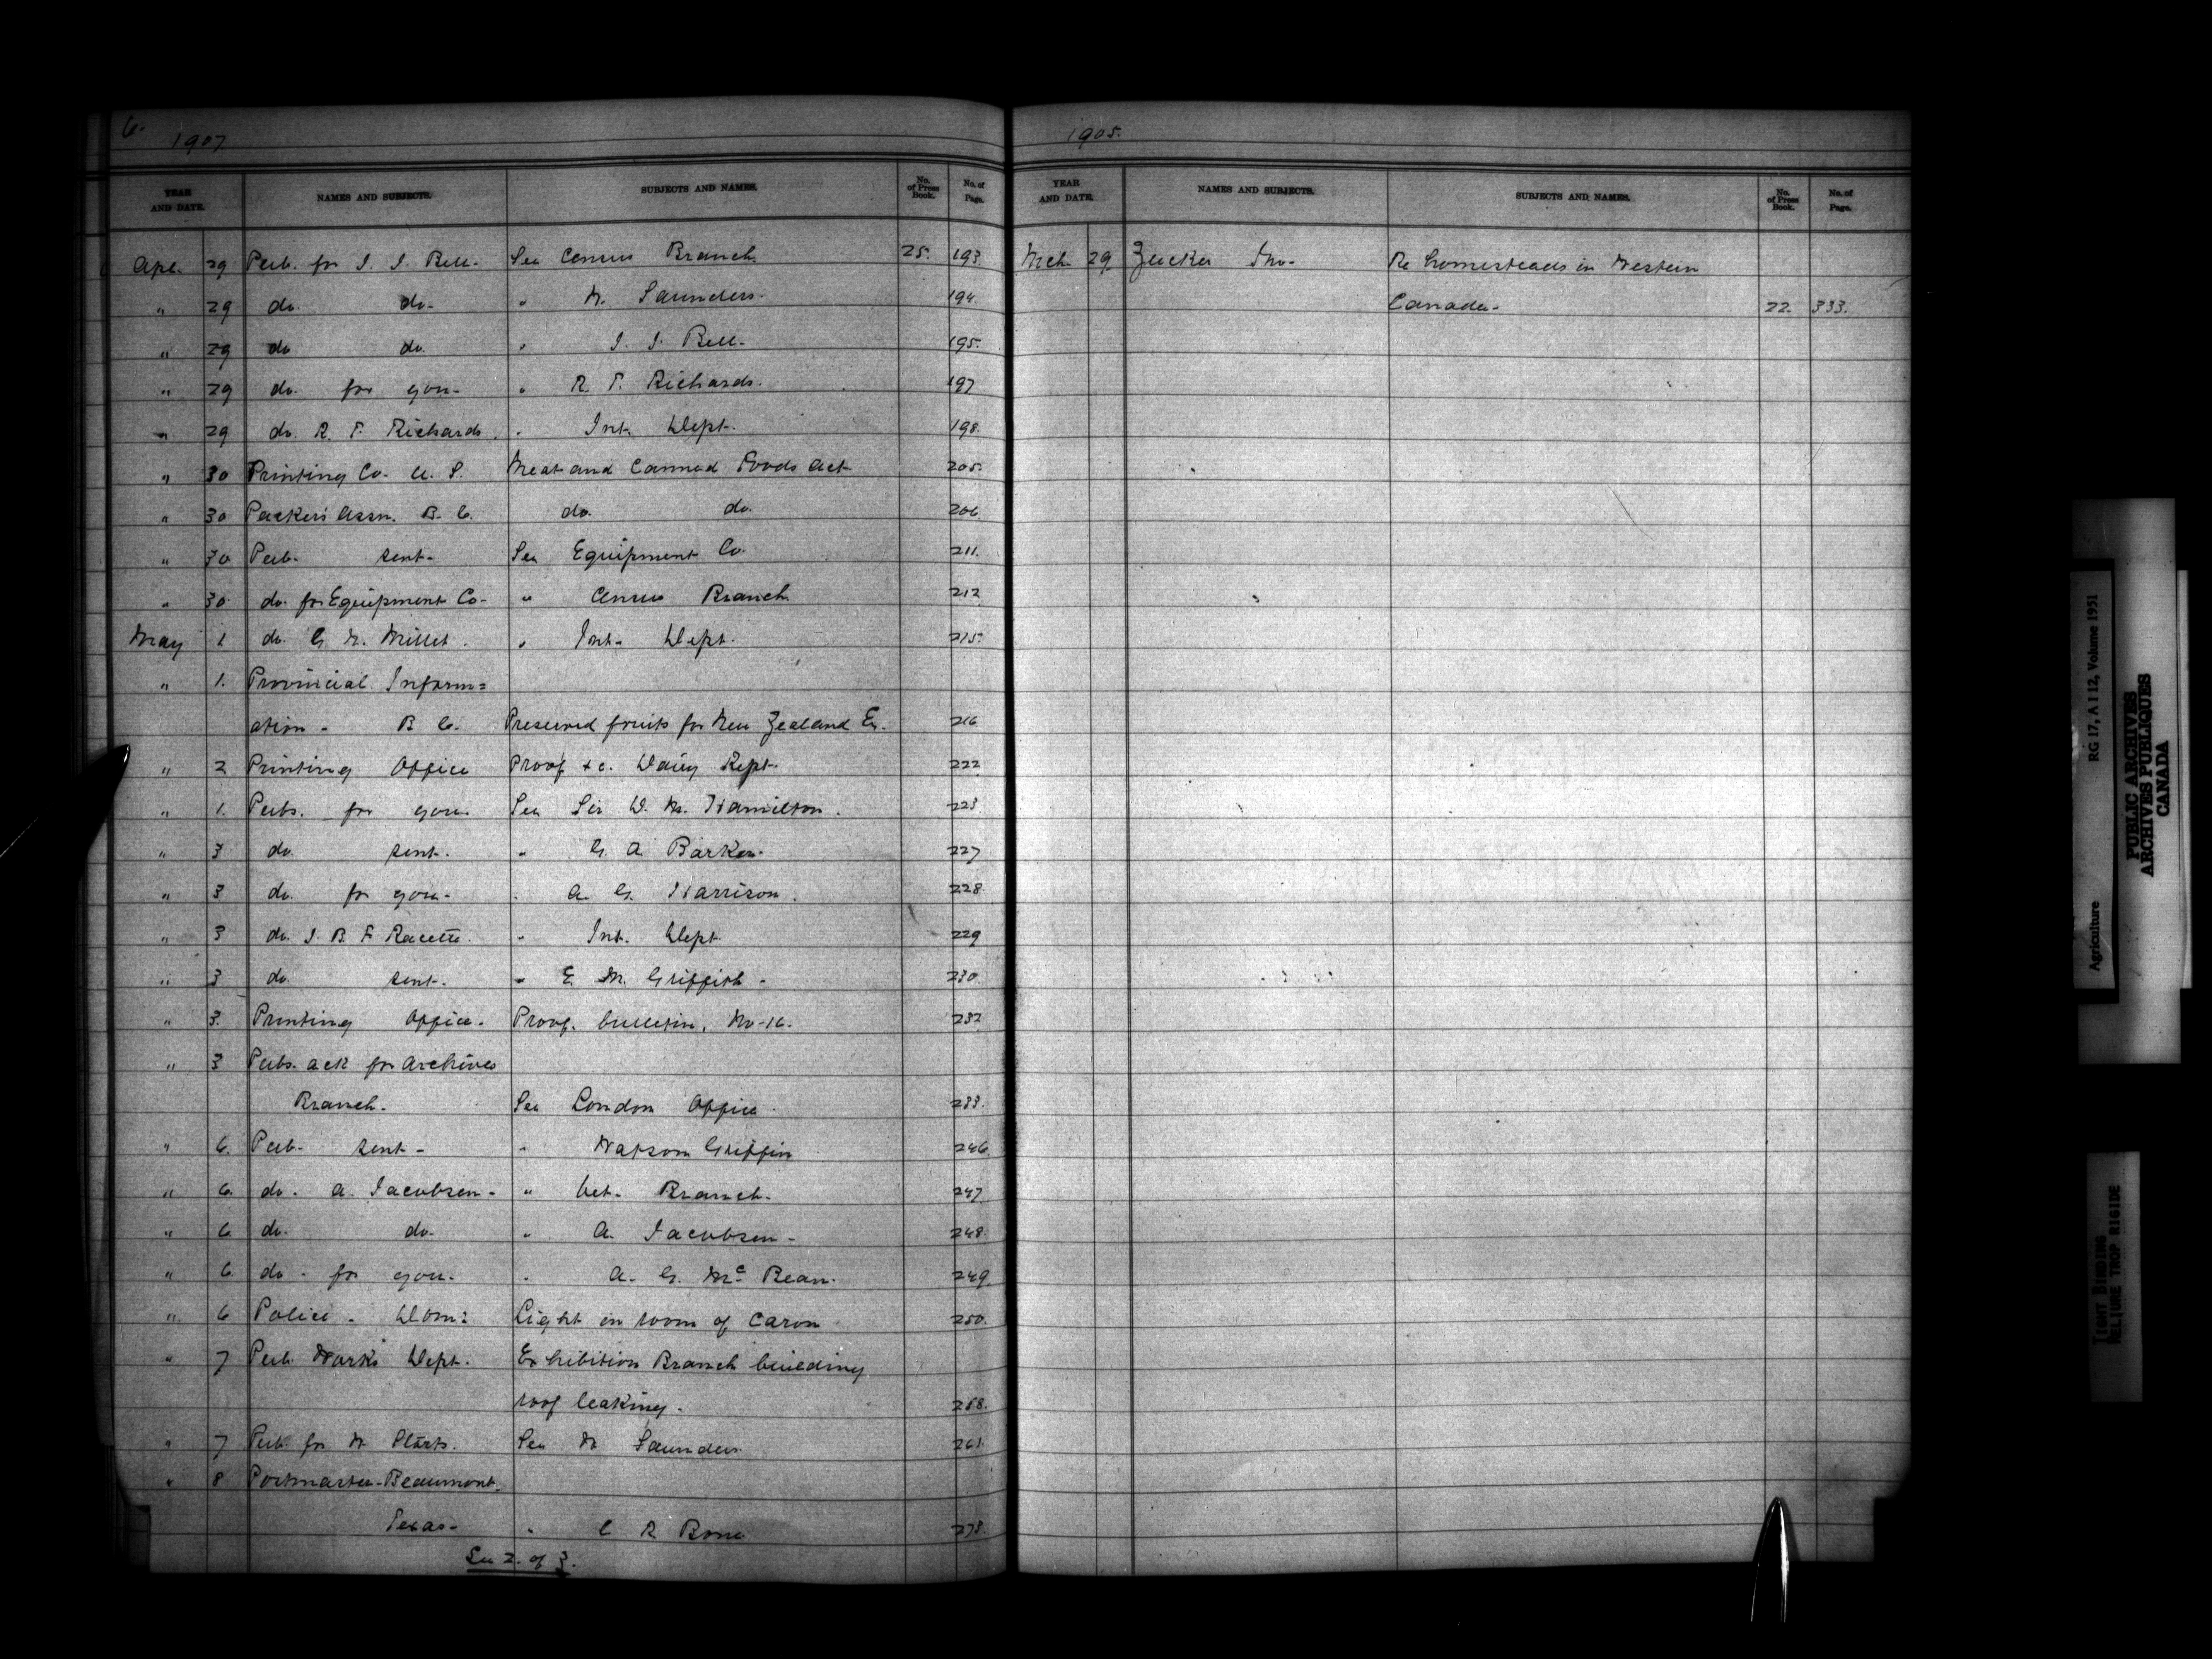 6.
1907
YEAR AND DATE. NAMES AND SUBJECTS. SUBJECTS AND NAMES. No. of Press Book. No. of Page.
Apl. 29 Pub. for J. J. Bell. See Census Branch. 25. 193.
" 29 do. do. " W. Saunders. 194.
" 29 do do. " J. J. Bell. 195.
" 29 do. for you. " R. T. Richards. 197
" 29 do. R. T. Richards. " Int. Dept. 198.
" 30 Printing Co. U. S. Meat and Canned Foods Act 205.
" 30 Packers Assn. B. C. do. do. 206
" 30 Pub. sent. See Equipment Co. 211.
" 30. do. for Equipment Co. " Census Branch 212
May 1 do. G. W. Millet. " Int. Dept. 215.
" 1. Provincial Inform=
ation - B C. Preserved fruits for New Zealand Ex. 216
" 2 Printing Office Proof &c. Dairy Rept. 222
" 1. Pubs. for you. See Sir D. M. Hamilton. 223
" 3 do. sent. " G. A. Barker. 227
" 3 do. for you. " A. G. Harrison. 228.
" 3 do. J. B. F Racette. " Int. Dept. 229
" 3 do. sent. " E. M. Griffith. 230.
" 3. Printing Office. Proof. bulletin. No-16. 232
" 3 Pubs. ack for Archives
Branch. See London Office. 233.
" 6. Pub. sent. " Watson Griffin 246
" 6. do. A. Jacobsen. " Vet. Branch. 247
" 6 do. do. " A. Jacobsen. 248.
" 6. do. for you. " A. G. McBean. 249.
" 6 Police - Dom: Light in room of Caron 250.
" 7 Pub. Works Dept. Exhibition Branch building
roof leaking. 258.
" 7 Pub. for W. See W Saunders. 261.
" 8 Postmaster-Beaumont.
Texas. " C R Bone 278.
See 2. of 3.
1905.
YEAR AND DATE. NAMES AND SUBJECTS. SUBJECTS AND NAMES. No. of Press Book. No. of Page.
Mch. 29 Zucker Jno. Re homesteads in Western
Canada. 22. 333.
Agriculture RG 17, A I 12, Volume 1951
PUBLIC ARCHIVES
ARCHIVES PUBLIQUES
CANADA
TIGHT BINDING
RELIURE TROP RIGIDE